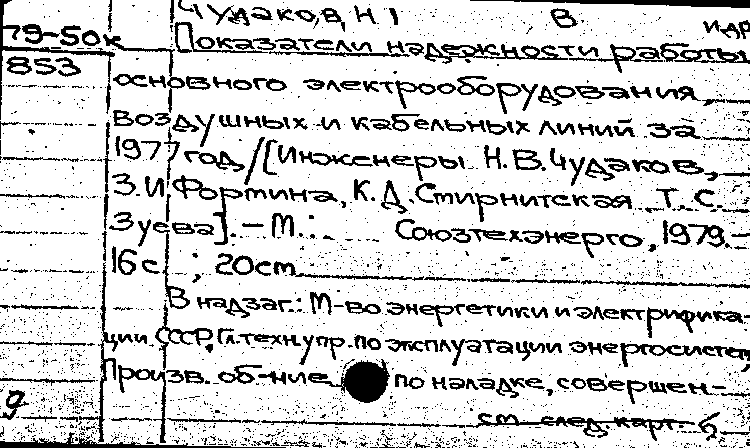 Чудаков, Н
В
79-50к
Показатели надежности работы
853
основного электрооборудования,
воздушных и кабельных линий за
1977 год / [Инженеры Н.В.Чудаков,
З.И Фортина, К.Д.Стирнитская Т.С.
Зуева]. – М.: Союзтехэнерго, 1979.–
16с ; 20см
В надзаг.: М-во энергетики и электрифика-
ции СССР, Гл.техн.упр.по эксплуатации энергосистем,
Произв. об-ние по наладке, совершен-
g
см след. карт. б